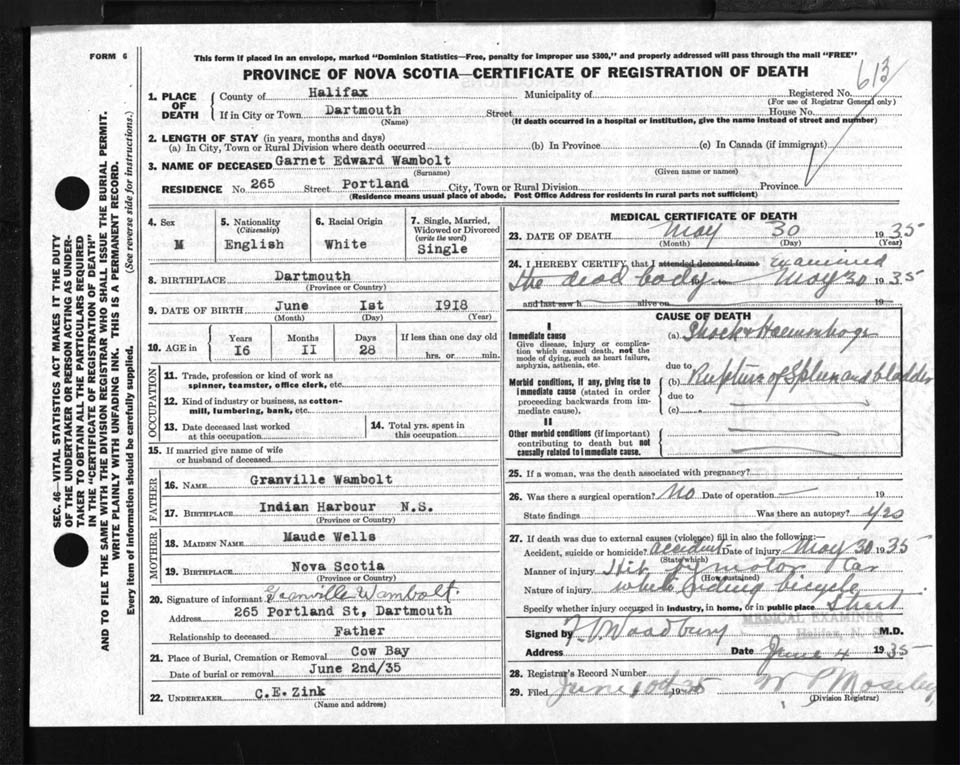 FORM 6
This form if placed in an envelope, marked "Dominion Statistics—Free, penalty for improper use $300," and properly addressed will pass through the mail "FREE"
PROVINCE OF NOVA SCOTIA—CERTIFICATE OF REGISTRATION OF DEATH
613
1. PLACE OF DEATH
County of Halifax Municipality of Registered No.
(For use of Registrar General only)
If in City or Town Dartmouth Street House No.
(Name) (If death occurred in a hospital or institution, give the name instead of street and number)
2. LENGTH OF STAY (in years, months and days)
(a) In City, Town or Rural Division where death occurred (b) In Province (c) In Canada (if immigrant)
3. NAME OF DECEASED Garnet Edward Wambolt
(Surname) (Given name or names)
RESIDENCE No. 265 Street Portland City, Town or Rural Division Province
(Residence means usual place of abode. Post Office Address for residents in rural parts not sufficient)
SEC. 46—VITAL STATISTICS ACT MAKES IT THE DUTY
OF THE UNDERTAKER OR PERSON ACTING AS UNDER-
TAKER TO OBTAIN ALL THE PARTICULARS REQUIRED
IN THE "CERTIFICATE OF REGISTRATION OF DEATH"
AND TO FILE THE SAME WITH THE DIVISION REGISTRAR WHO SHALL ISSUE THE BURIAL PERMIT.
WRITE PLAINLY WITH UNFADING INK. THIS IS A PERMANENT RECORD.
Every item of information should be carefully supplied. (See reverse side for instructions.)
4. Sex
M
5. Nationality
(Citizenship)
English
6. Racial Origin
White
7. Single, Married,
Widowed or Divorced
(write the word)
Single
8. BIRTHPLACE Dartmouth
(Province or Country)
9. DATE OF BIRTH June Ist 1918
(Month) (Day) (Year)
10. AGE in
Years Months Days If less than one day old
I6 II 28 hrs. or min.
OCCUPATION
11. Trade, profession or kind of work as
spinner, teamster, office clerk, etc.
12. Kind of industry or business, as cotton-
mill, lumbering, bank, etc.
13. Date deceased last worked
at this occupation
14. Total yrs. spent in
this occupation
15. If married give name of wife
or husband of deceased
FATHER
16. NAME Granville Wambolt
17. BIRTHPLACE Indian Harbour N.S.
(Province or Country)
MOTHER
18. MAIDEN NAME Maude Wells
19. BIRTHPLACE Nova Scotia
(Province or Country)
20. Signature of informant Granville Wambolt.
Address 265 Portland St, Dartmouth
Relationship to deceased Father
21. Place of Burial, Cremation or Removal Cow Bay
Date of burial or removal June 2nd/35
22. UNDERTAKER C.E.Zink
(Name and address)
MEDICAL CERTIFICATE OF DEATH
23. DATE OF DEATH May 30 1935
(Month) (Day) (Year)
24. I HEREBY CERTIFY, that I attended deceased from examined
the dead body to May 30 1935
and last saw h alive on 19
CAUSE OF DEATH
I
Immediate cause
Give disease, injury or complica-
tion which caused death, not the
mode of dying, such as heart failure,
asphyxia, asthenia, etc.
(a) Shock & Haemorrhage
due to
Morbid conditions, if any, giving rise to
immediate cause (stated in order
proceeding backwards from im-
mediate cause).
(b) Rupture of Spleen and bladder
due to
(c)
II
Other morbid conditions (if important)
contributing to death but not
causally related to immediate cause.
25. If a woman, was the death associated with pregnancy?
26. Was there a surgical operation? No Date of operation 19
State findings Was there an autopsy? Yes
27. If death was due to external causes (violence) fill in also the following:—
Accident, suicide or homicide? accident Date of injury May 30 1935
(State which)
Manner of injury Hit by motor car
(How sustained)
Nature of injury while riding bicycle
Specify whether injury occurred in industry, in home, or in public place Street
MEDICAL EXAMINER
Halifax, N. S.
Signed by Woodbury M.D.
Address Date June 4 1935
28. Registrar's Record Number
29. Filed June 1935 W P Moseley
(Division Registrar)